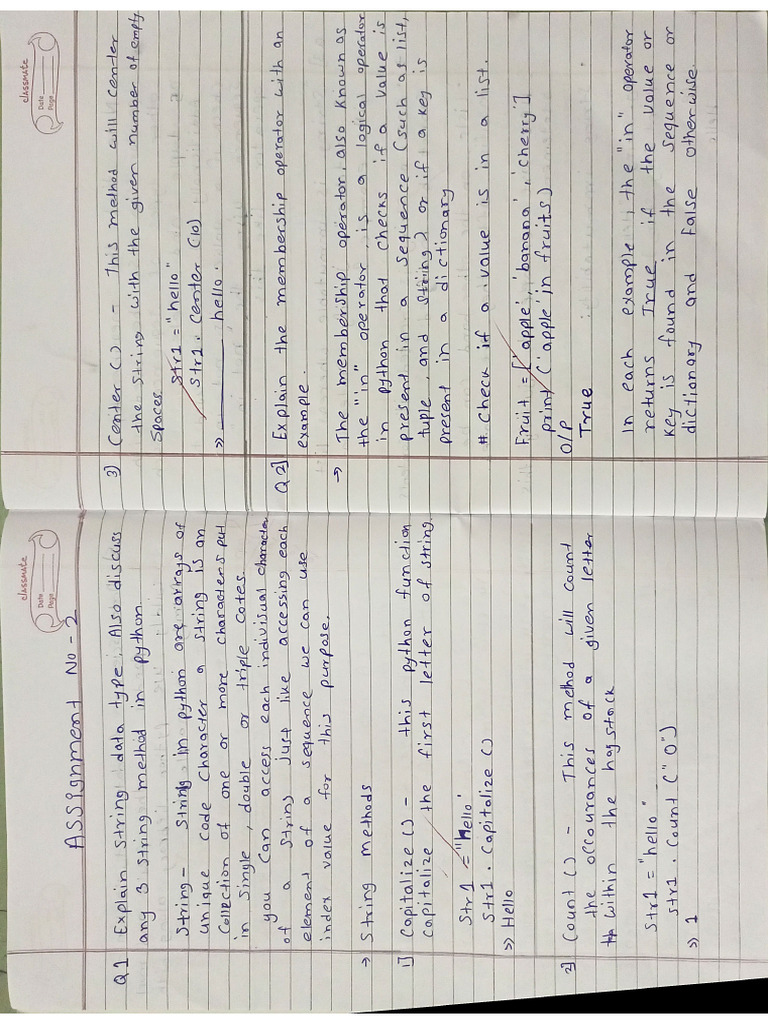 classmate
Date
Page
ASSIGNMENT No - 2
Q1 Explain String data type. Also discuss
any 3 string method in python.
String - String in python are arrays of
unique code character a string is an
collection of one or more characters put
in single, double or triple cotes.
you can access each indivisual character
of a string just like accessing each
element of a sequence we can use
index value for this purpose.
→ String methods
1] Capitalize () - this python function
capitalize the first letter of string.
Str1 = "Hello'
Str1. Capitalize ()
>> Hello
2] Count () - This method will count
the occourances of a given letter
within the haystack
Str1 = "hello"
str1. Count ("O")
>> 1
classmate
Date
Page
3) Center () - This method will center
the string with the given number of empty
Spaces
Str1 = "hello"
Str1. Center (10)
>> ______ hello.
Q2] Explain the membership operator with an
example.
→ The membership operator, also known as
the "in" operator, is a logical operator
in python that checks if a value is
present in a sequence (such as list,
tuple, and string) or if a key is
present in a dictionary
# Check if a value is in a list.
Fruit = ['apple', 'banana', 'cherry']
print ('apple' in fruits)
O/P
True
In each example, the "in" operator
returns True if the value or
key is found in the sequence or
dictionary and False otherwise.